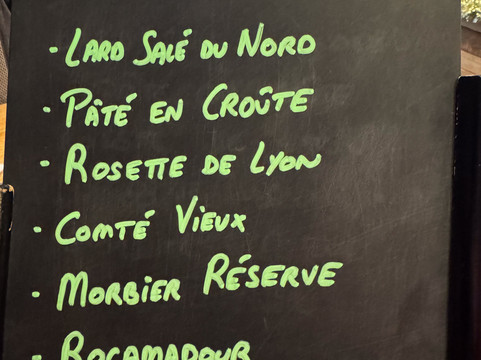 · Lard Salé du Nord
· Pâté en Croûte
· Rosette de Lyon
· Comté Vieux
· Morbier Réserve
· Rocamadour